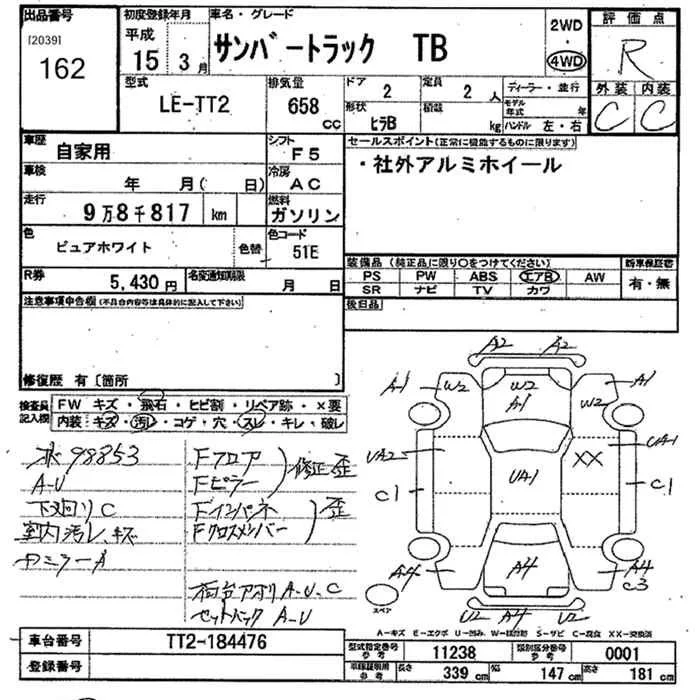 出品番号 初度登録年月 車名・グレード 2WD 評価点
[2039] 平成
162 15年 3月 サンバートラック TB 4WD R
型式 排気量 ドア 2 定員 2人 ディーラー・並行 外装 内装
LE-TT2 658 cc 形状 ヒラB 積載 kg モデル年式 年 ハンドル 左・右 C C
車歴 自家用 シフト F5 セールスポイント(正常に機能するものに限ります)
車検 年 月( 日) 冷房 AC ・社外アルミホイール
走行 9万8千817 km 燃料 ガソリン
色 ピュアホワイト 色替 色コード 51E
装備品(純正品に限り〇をつけてください) 新車保証書
R券 5,430円 名変通知期限 月 日 PS PW ABS エアB AW 有・無
SR ナビ TV カワ
注意事項申告欄(不具合内容等は具体的に記入して下さい) 後日品
修復歴 有〔箇所 〕
検査員記入欄 FW キズ・飛石・ヒビ割・リペア跡・×要
内装:キズ・汚レ・コゲ・穴・スレ・キレ・破レ
98853 Fフロア 修正歪
A-U Fピラー
下廻りC Fインパネ 歪
室内汚レ、キズ Fクロスメンバー
荷台アオリ A-U-C
セットバック A-U
A2 A2
A1 W2 W2 W2 A1
A1
UA2 UA1 XX UA1
C1 C1
A4 A4 A4
C3
スペア U2 A4 U2
A-キズ E-エクボ U-凹み W-補修跡 S-サビ C-腐食 XX-交換済
車台番号 TT2-184476 型式指定番号 参考 11238 類別区分番号 参考 0001
登録番号 車庫証明用 参考 長さ 339 cm 幅 147 cm 高さ 181 cm